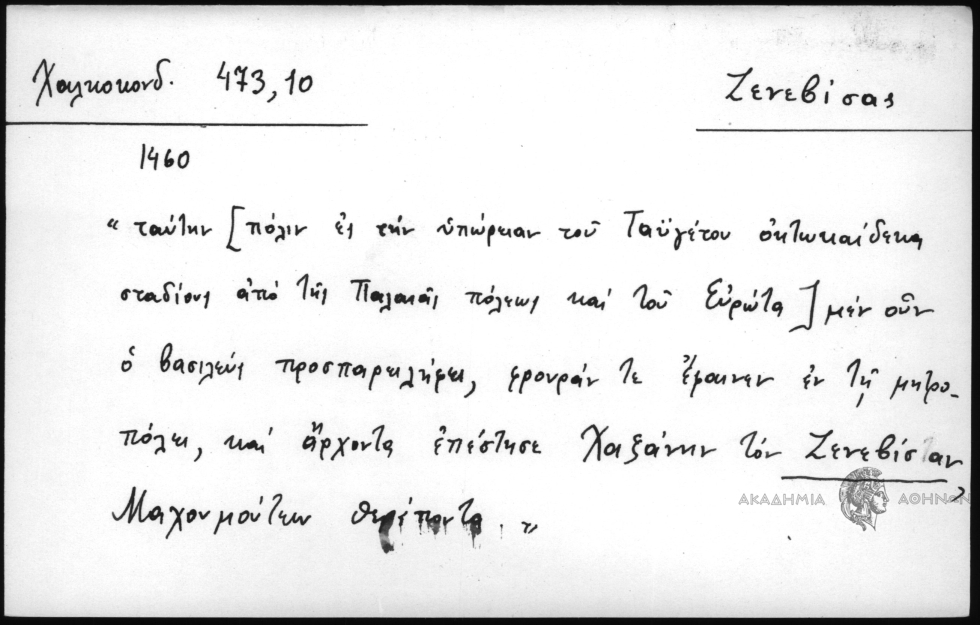 Χαλκοκονδ. 473,10
Ζενεβίσας
1460
“ ταύτην [πόλιν ἐς τὴν ὑπώρειαν τοῦ Ταϋγέτου ὀκτωκαίδεκα
σταδίους ἀπό τῆς Παλαιᾶς πόλεως καί τοῦ Εὐρώτα] μέν οὖν
ὁ βασιλεύς προσπαρειλήφει, φρουράν τε ἔφαινεν ἐν τῇ μητρο-
πόλει, καί ἄρχοντα ἐπέστησε Χαξάνην τόν Ζενεβίσταν,
Μαχουμούτεω θεράποντα. ”
ΑΚΑΔΗΜΙΑ ΑΘΗΝΩΝ